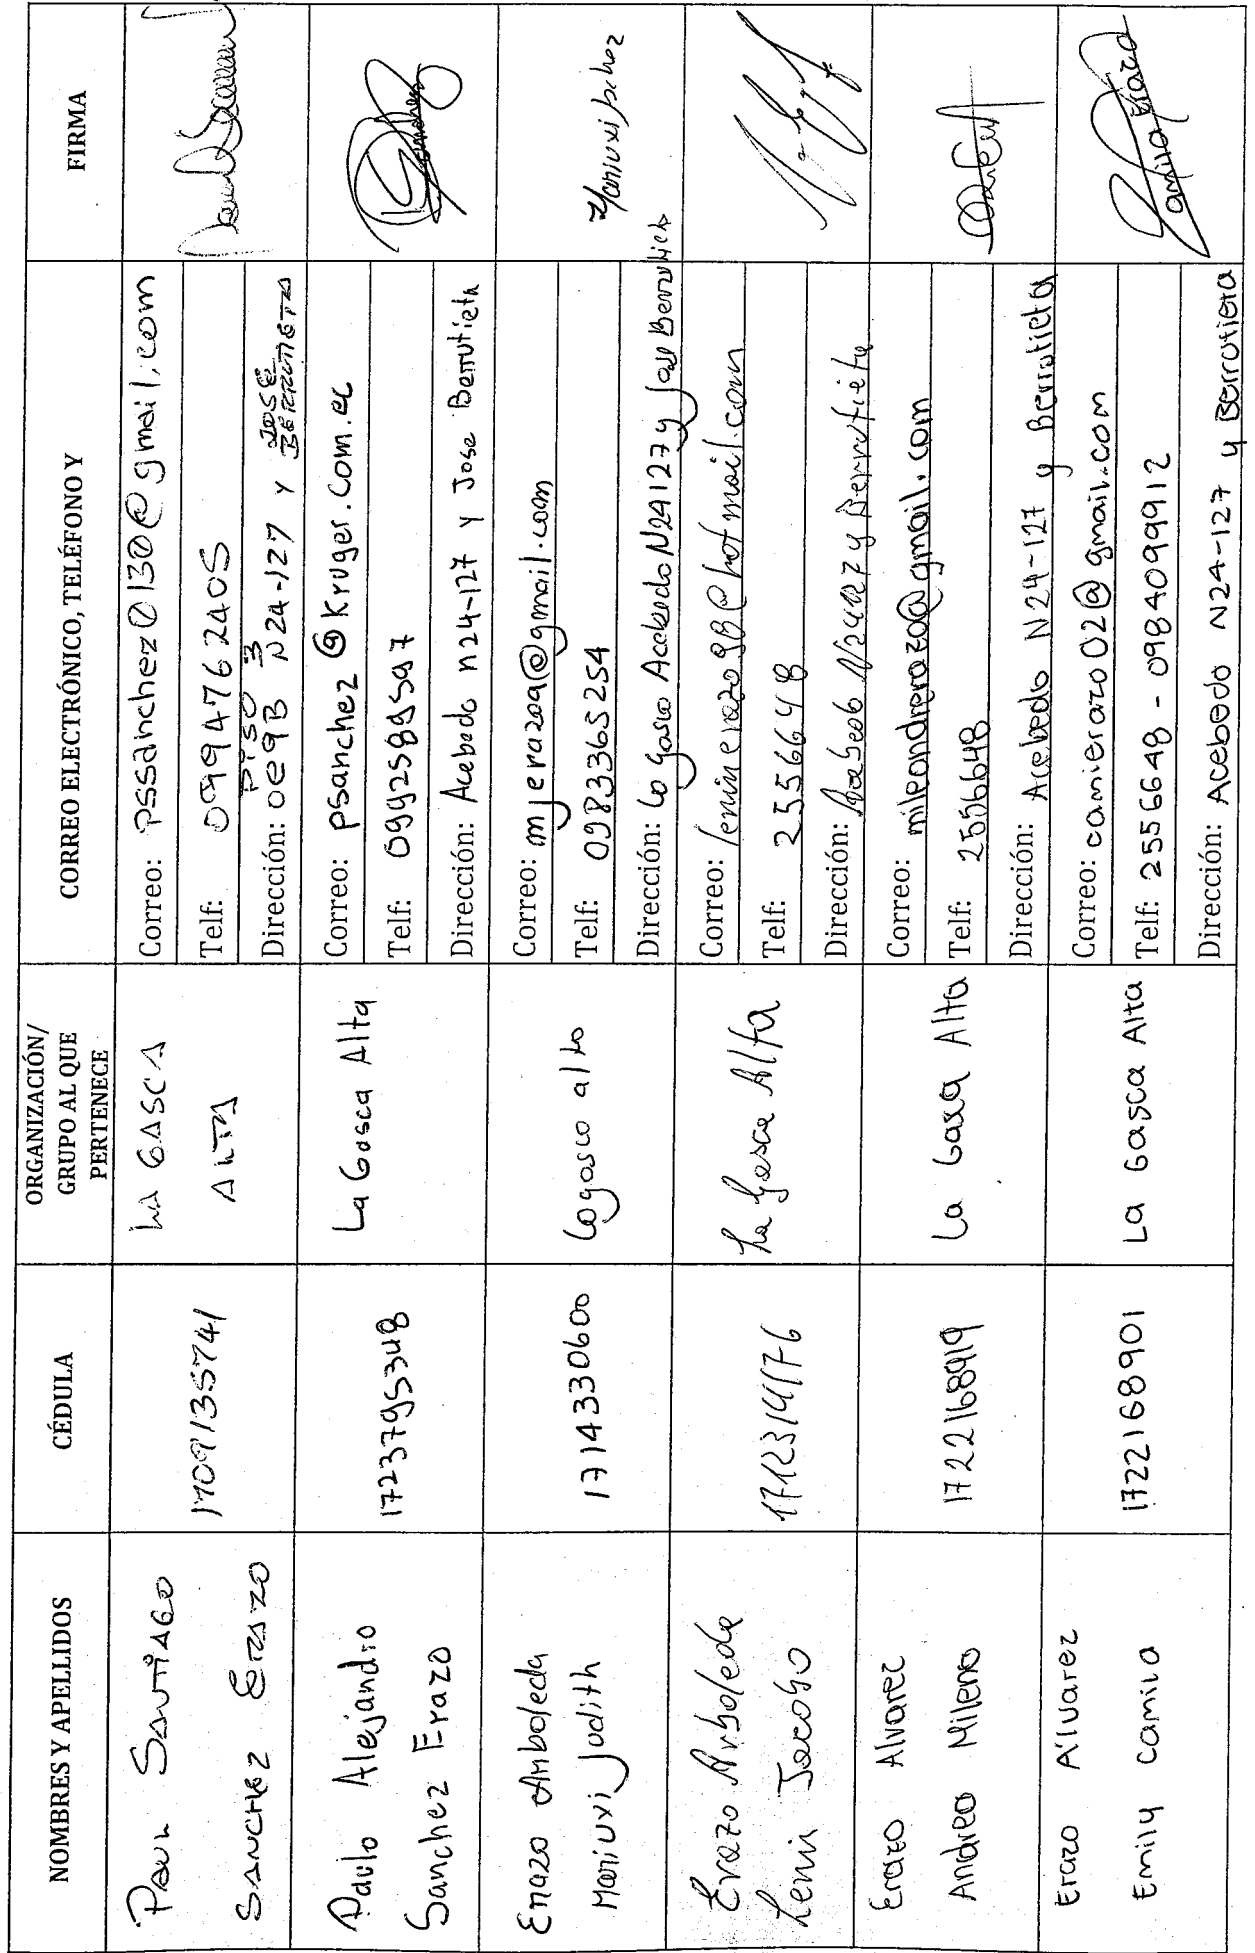 NOMBRES Y APELLIDOS
CÉDULA
ORGANIZACIÓN/
GRUPO AL QUE
PERTENECE
CORREO ELECTRÓNICO, TELÉFONO Y
FIRMA
Paul Santiago
Sanchez Erazo
1709135741
La Gasca
Alta
Correo: pssanchez0130@gmail.com
Telf: 0994762405
Dirección: Oe9B N24-127 y José Berrutieta
Piso 3
Paulo Alejandro
Sanchez Erazo
1723795348
La Gasca Alta
Correo: psanchez@Kruger.com.ec
Telf: 0992589597
Dirección: Acebedo n24-127 y Jose Berrutieta
Sanchez
Erazo Arboleda
Mariuxi Judith
1714330600
La gasca alta
Correo: mjeraza@gmail.com
Telf: 0983365254
Dirección: La gasca Acebedo N24127 y José Berrutieta
Erazo Arboleda
Lenin Jacobo
1712314176
La Gasca Alta
Correo: leninerazo9B@hotmail.com
Telf: 2556648
Dirección: Acebedo N24127 y Berrutieta
Erazo Alvarez
Andrea Milena
1722168919
La Gasca Alta
Correo: mileandrerazo@gmail.com
Telf: 2556648
Dirección: Acebedo N24-127 y Berrutieta
Erazo Alvarez
Emily Camila
1722168901
La Gasca Alta
Correo: camierazo02@gmail.com
Telf: 2556648 - 0984099912
Dirección: Acebedo N24-127 y Berrutieta
Camila Erazo